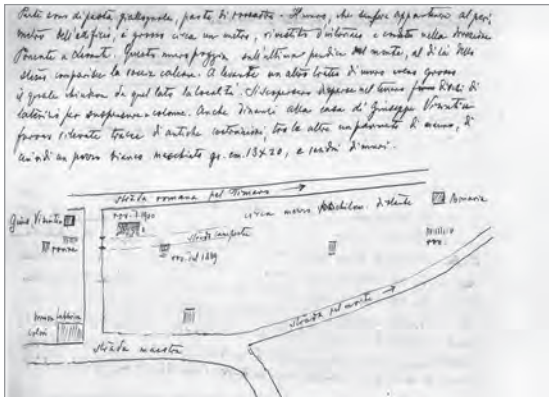 Parte sono di pasta giallognola, parte di rossastra - Il muro, che sembra appartenere al peri,
metro dell'edificio, è grosso circa un metro, rivestito d'intonaco e corrente nella direzione
Ponente a Levante. Questo muro poggia sull'ultima pendice del monte, al di là dello
stesso comparisce la roccia calcarea. A levante un altro tratto di muro meno grosso
il quale chiudeva da quel lato la località. Si scopersero disperse nel terreno dischi di
laterizi per suspensurae e colonne. Anche dinanzi alla casa di Giuseppe Visintin
furono rilevate tracce di antiche costruzioni, tra le altre un pavimento di musaico, di
cui vidi un pezzo bianco meschiato gr. cm. 13x20, e ruderi di muri.
strada romana pel Timavo
Gius. Visintin
rov. d. 1900
circa mezzo chilom. distante
Bonaria
strada campestre
rovine
rov. del 1889
Mitreo
rov.
coloni
strada pel monte
strada maestra